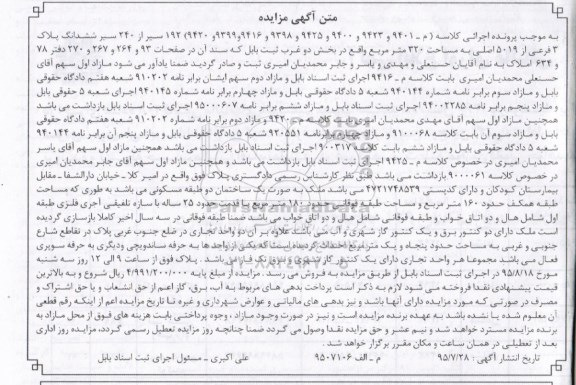 متن آگهی مزایده
به موجب پرونده اجرائی کلاسه ( م ـ ۹۴۰۱ و ۹۴۲۳ و ۹۴۰۰ و ۹۴۲۵ و ۹۳۹۸ و ۹۴۱۶و۹۳۹۹و ۹۴۲۰) ۱۹۲ سیر از ۲۴۰ سیر ششدانگ پلاک
۳ فرعی از ۵۰۱۹ اصلی به مساحت ۳۲۰ متر مربع واقع در بخش دو غرب ثبت بابل که سند آن در صفحات ۹۳ و ۲۶۴ و ۲۶۷ و ۲۷۰ دفتر ۷۸
و ۶۳۴ املاک به نام آقایان حسنعلی و مهدی و یاسر و جابر محمدیان امیری ثبت و صادر گردید ضمنا یادآور می شود مازاد اول سهم آقای
حسنعلی محمدیان امیری بابت کلاسه م ـ ۹۴۱۶ اجرای ثبت اسناد بابل و مازاد دوم سهم ایشان برابر نامه ۹۱۰۲۰۲ شعبه هفتم دادگاه حقوقی
بابل و مازاد سوم برابر نامه شماره ۹۴۰۱۴۴ شعبه ۵ دادگاه حقوقی بابل و مازاد چهارم برابر نامه شماره ۹۴۰۱۴۵ اجرای شعبه ۵ حقوقی بابل
و مازاد پنجم برابر نامه ۹۴۰۰۲۲۸۵ اجرای ثبت اسناد بابل و مازاد ششم برابر نامه ۹۵۰۰۰۶۰۷ اجرای ثبت اسناد بابل بازداشت می باشد
همچنین مازاد اول سهم آقای مهدی محمدیان امیری بابت کلاسه م ـ ۹۴۲۰ و مازاد دوم برابر نامه شماره ۹۱۰۲۰۲ شعبه هفتم دادگاه حقوقی
بابل و مازاد سوم آن بابت کلاسه ۹۱۰۰۰۶۸ و مازاد چهارم برابر نامه ۹۲۰۵۵۱ شعبه ۵ دادگاه حقوقی بابل و مازاد پنجم آن برابر نامه ۹۴۰۱۴۴
شعبه ۵ دادگاه حقوقی بابل و مازاد ششم بابت کلاسه ۹۰۰۳۱۷ اجرای ثبت اسناد بابل بازداشت می باشد همچنین مازاد اول سهم آقای یاسر
محمدیان امیری در خصوص کلاسه م ـ ۹۴۲۵ اجرای ثبت اسناد بابل بازداشت می باشد و همچنین مازاد اول سهم آقای جابر محمدیان امیری
در خصوص کلاسه ۹۰۰۰۰۶۱ بازداشت می باشد طبق نظر کارشناس رسمی دادگستری پلاک فوق واقع در امیر کلا ـ خیابان دارالشفا ـ مقابل
بیمارستان کودکان و دارای کدپستی ۴۷۳۱۷۴۸۵۳۹ می باشد ملک به صورت یک ساختمان دو طبقه مسکونی می باشد به طوری که مساحت
طبقه همکف حدود ۱۶۰ متر مربع و مساحت طبقه فوقانی متر مربع با قدمت حدود ۲۵ ساله با سازه تلفیقی آجری فلزی طبقه
اول شامل هال و دو اتاق خواب و طبقه فوقانی شامل هال و دو اتاق خواب می باشد ضمنا طبقه فوقانی در سه سال اخیر کاملا بازسازی گردیده
است ملک دارای دو کنتور برق و یک کنتور گاز شهری و آب می باشد علاوه بر آن دو واحد تجاری در ضلع جنوب غربی پلاک در تقاطع شارع
جنوبی و غربی به مساحت حدود پنجاه و یک متر مربع احداث گردیده است که یکی از واحد ها به حرفه ساندویچی ودیگری به حرفه سوپری
فعال می باشد مجموعا هر واحد تجاری دارای یک کنتور گاز شهری و کنتور برق تک فاز می باشد . پلاک فوق از ساعت ۹ الی ۱۲ روز سه شنبه
مورخ ۹۵/۸/۱۸ در اجرای ثبت اسناد بابل از طریق مزایده به فروش می رسد . مزایده از مبلغ پایه ۴/۹۹۱/۲۰۰/۰۰۰ ریال شروع و به بالاترین
قیمت پیشنهادی نقدا فروخته می شود لازم به ذکر است پرداخت بدهی های مربوط به آب، برق، گاز اعم از حق انشعاب و یا حق اشتراک و
مصرف در صورتی که مورد مزایده دارای آنها باشد و نیز بدهی های مالیاتی و عوارض شهرداری و غیره تا تاریخ مزایده اعم از اینکه رقم قطعی
آن معلوم شده یا نشده باشد به عهده برنده مزایده است و نیز در صورت وجود مازاد ، وجوه پرداختی بابت هزینه های فوق از محل مازاد به
برنده مزایده مسترد خواهد شد و نیم عشر و حق مزایده نقدا وصول می گردد ضمنا چنانچه روز مزایده تعطیل رسمی گردد، مزایده روز اداری
بعد از تعطیلی در همان ساعت و مکان مقرر برگزار خواهد شد .
تاریخ انتشار آگهی : ۹۵/۷/۲۸ م ـ الف ۹۵۰۷۱۰۶ علی اکبری ـ مسئول اجرای ثبت اسناد بابل